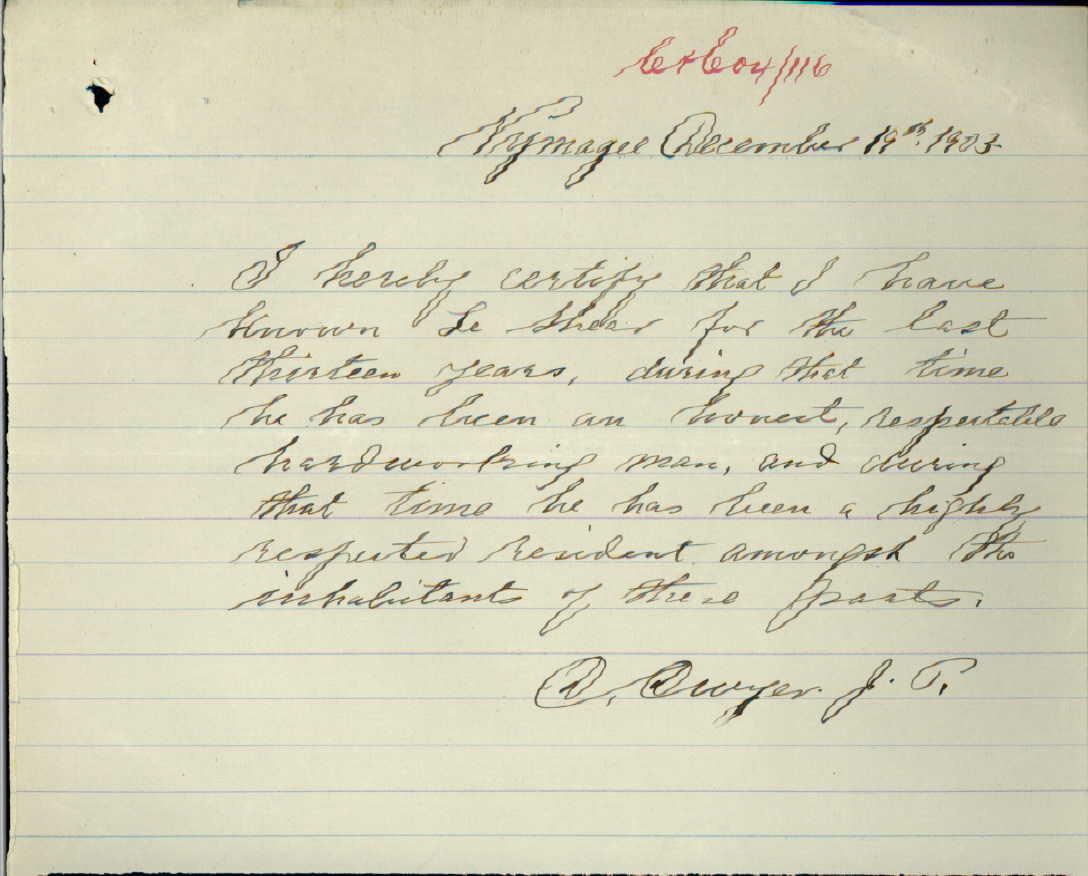 C & E 04/116
Nymagee December 19th. 1903
I hereby certify that I have
known Le Shear for the last
thirteen years, during that time
he has been an honest, respectable
hardworking man, and during
that time he has been a highly
respected resident amongst the
inhabitants of these parts.
D. Dwyer. J. P.